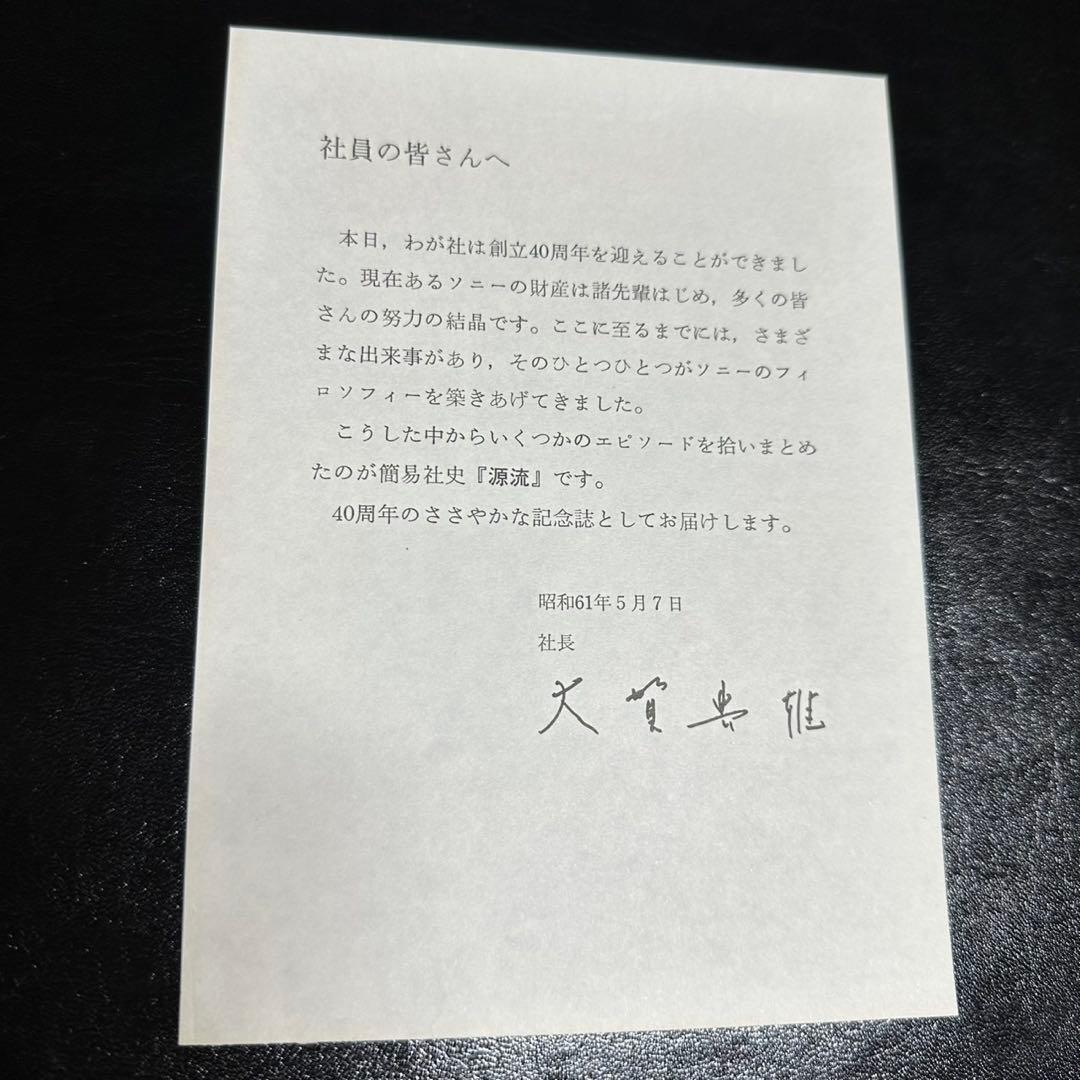 社員の皆さんへ
本日，わが社は創立40周年を迎えることができまし
た。現在あるソニーの財産は諸先輩はじめ，多くの皆
さんの努力の結晶です。ここに至るまでには，さまざ
まな出来事があり，そのひとつひとつがソニーのフィ
ロソフィーを築きあげてきました。
こうした中からいくつかのエピソードを拾いまとめ
たのが簡易社史『源流』です。
40周年のささやかな記念誌としてお届けします。
昭和61年５月７日
社長
大賀典雄